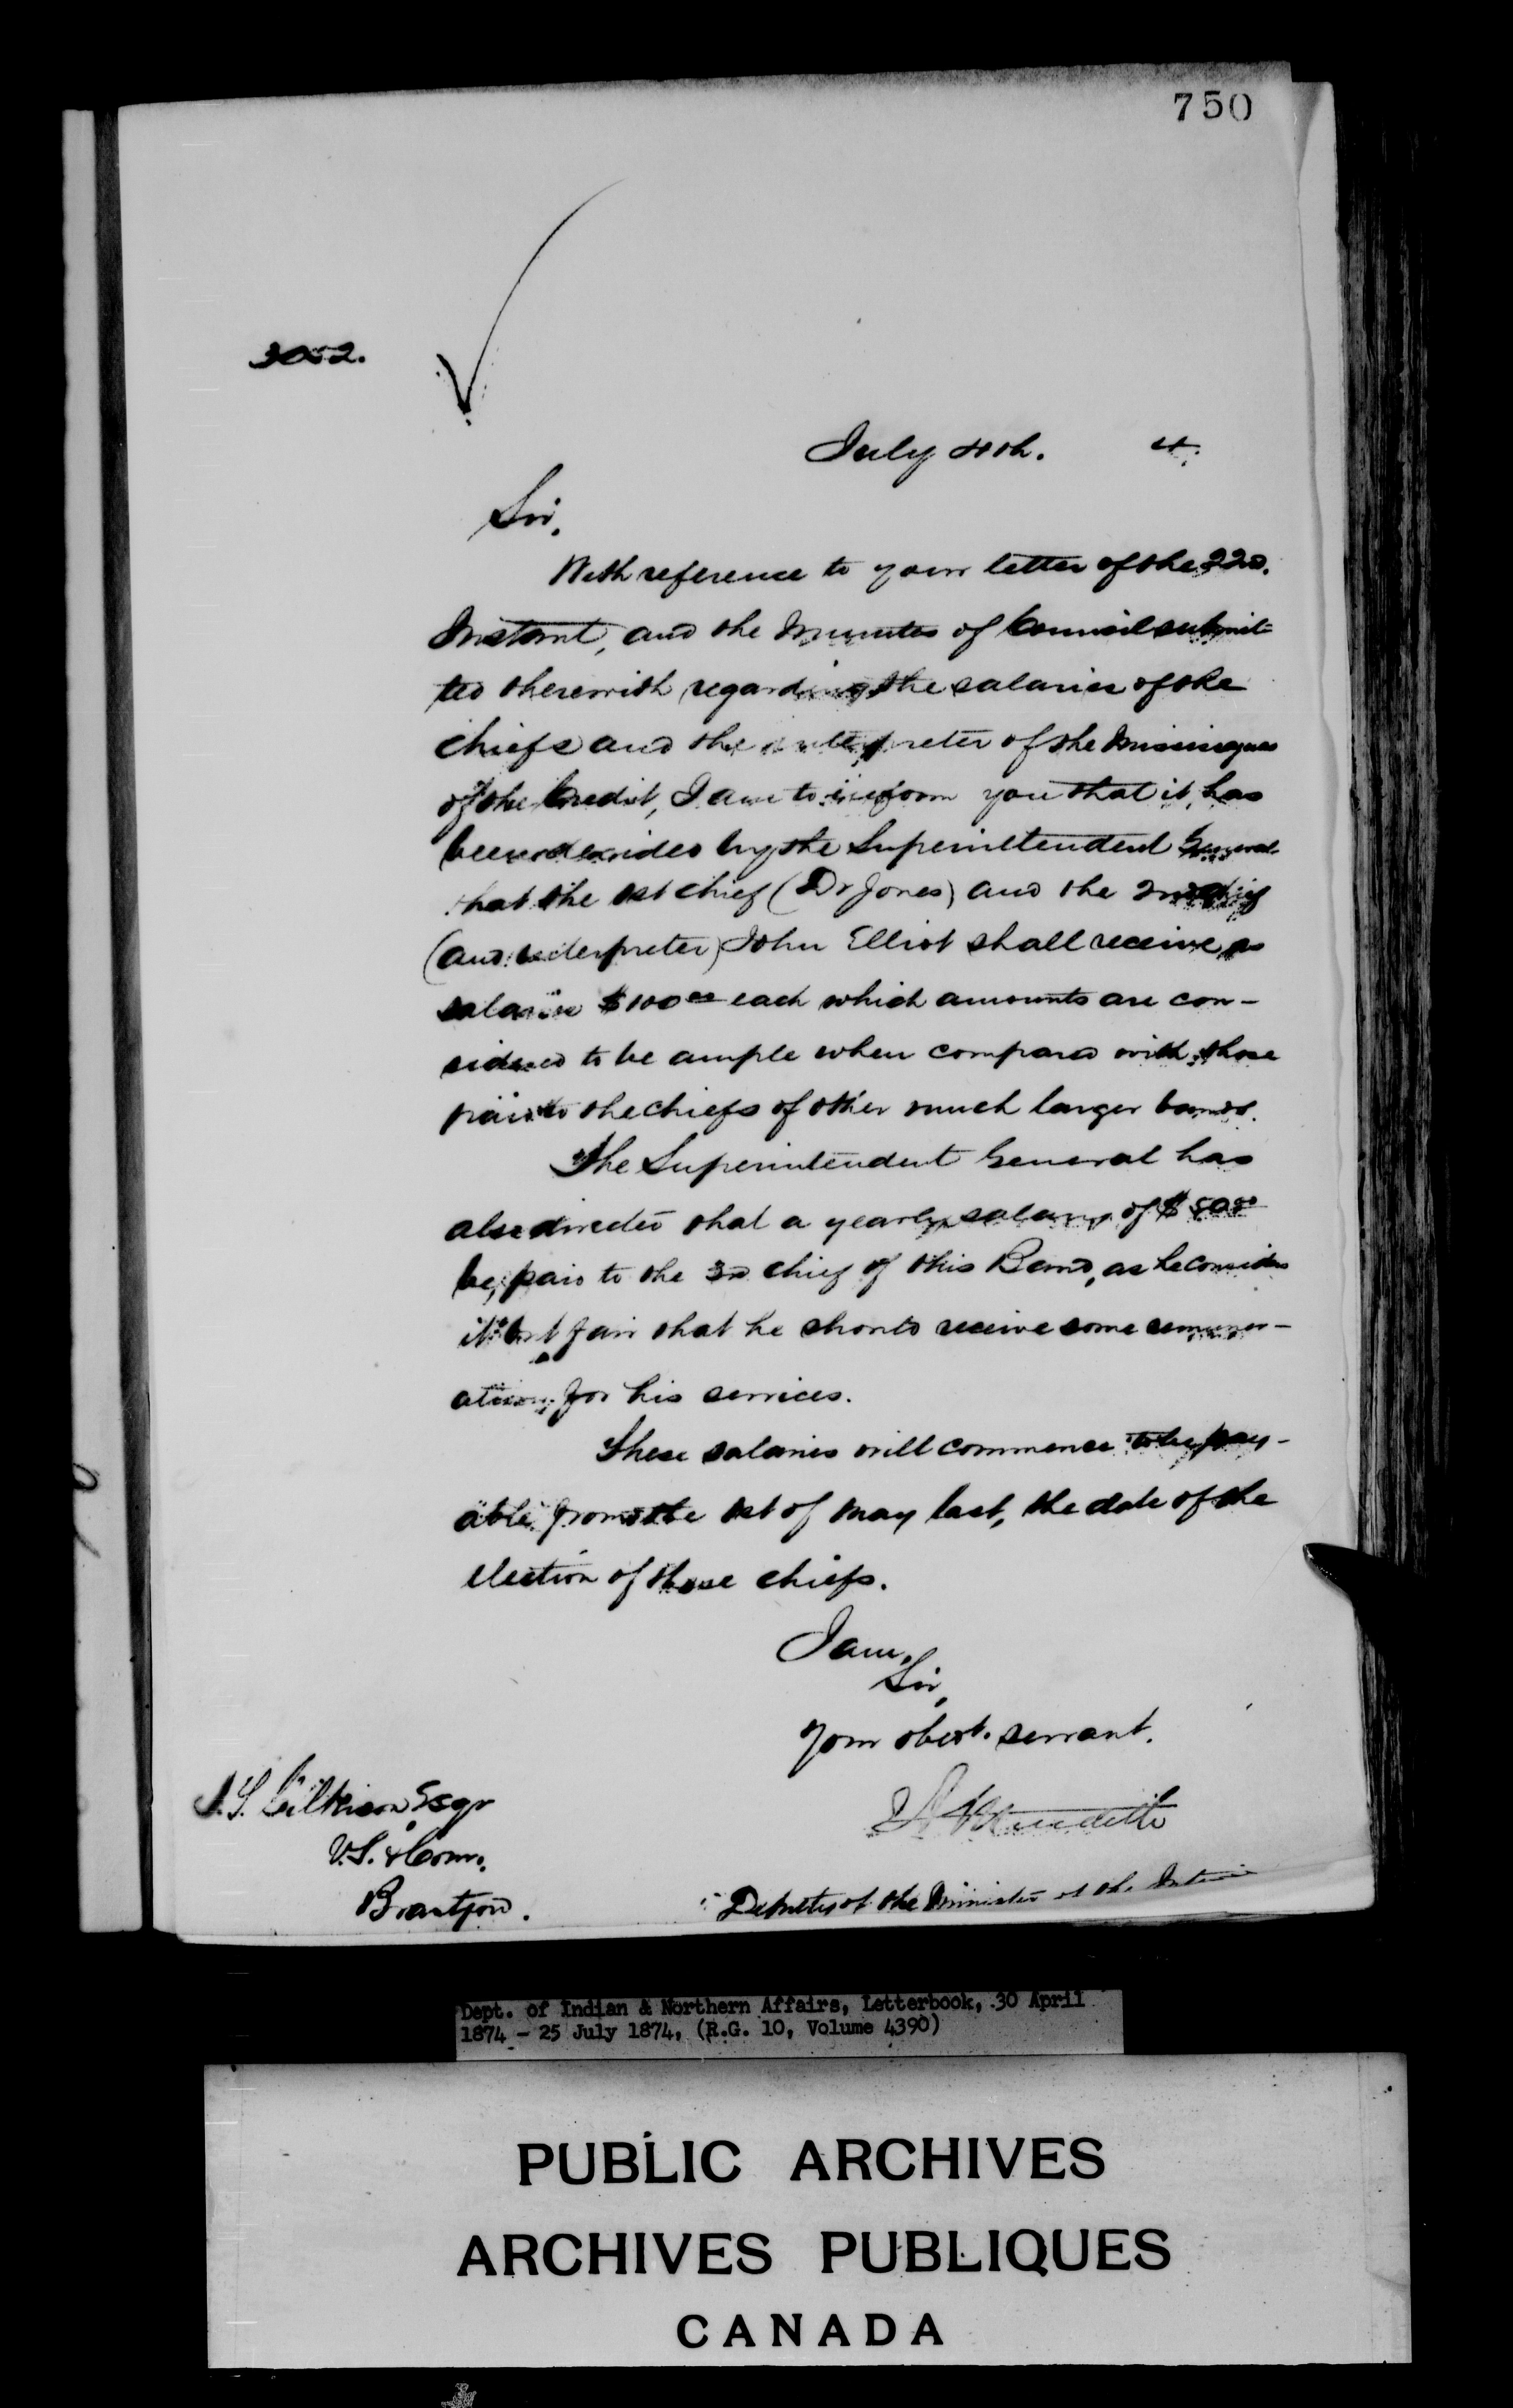 750
3052.
July 4th. 4.
Sir,
With reference to your letter of the 22d.
Instant, and the Minutes of Council submit-
ted therewith regarding the salaries of the
chiefs and the interpreter of the Mississaguas
of the Credit, I am to inform you that it has
been decided by the Superintendent General
that the 1st chief (Dr Jones) and the 2nd chief
(and interpreter) John Elliot shall receive as
salaries $100 00 each which amounts are con-
sidered to be ample when compared with those
paid to the chiefs of other much larger bands.
The Superintendent General has
also directed that a yearly salary of $50 00
be paid to the 3d chief of this Band, as he considers
it but fair that he should receive some remuner-
ation for his services.
These salaries will commence to be pay-
able from the 1st of May last, the date of the
election of these chiefs.
I am,
Sir,
Your obedt. servant.
J. T. Gilkison, Esqr
V.S. & Comr.
Brantford.
Deputy of the Minister of the Interior
Dept. of Indian & Northern Affairs, Letterbook, 30 April
1874 - 25 July 1874, (R.G. 10, Volume 4390)
PUBLIC ARCHIVES
ARCHIVES PUBLIQUES
CANADA